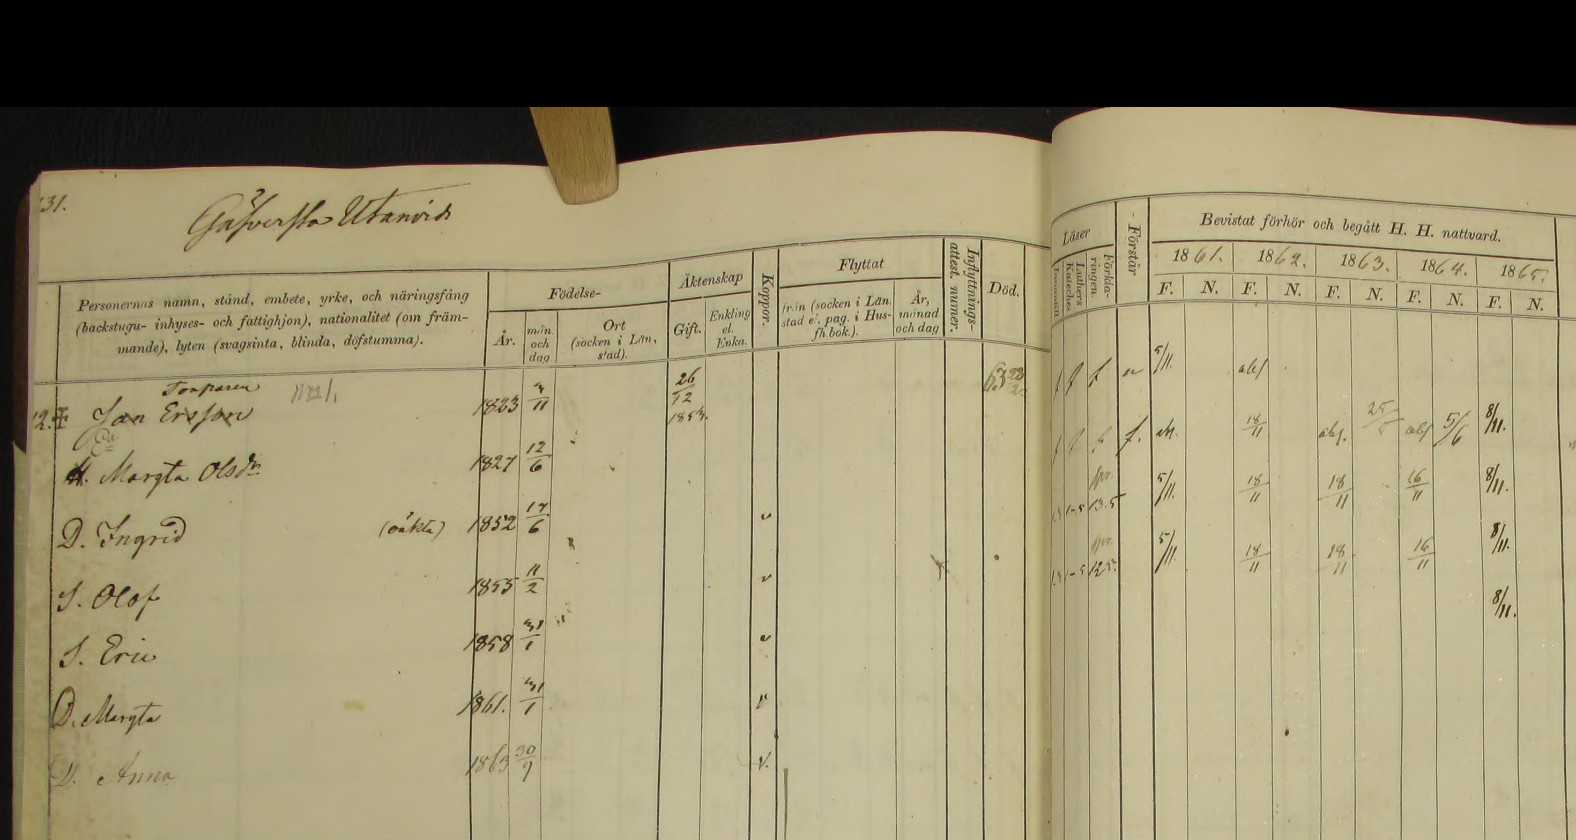 131.
Gåfversta Utanvids
Personernas namn, stånd, embete, yrke, och näringsfång
(backstugu- inhyses- och fattighjon), nationalitet (om främ-
mande), lyten (svagsinta, blinda, döfstumma).
Födelse-
År.
mån. och dag
Ort (socken i Län, stad).
Äktenskap
Gift.
Enkling el. Enka.
Koppor.
Flyttat
från (socken i Län, stad el. pag. i Hus- fh.bok.).
År, månad och dag
Inflyttnings- attest. numer.
Död.
Läser
Luthers Kateches
Förkla- ringen
Förstår
Bevistat förhör och begått H. H. nattvard.
1861. 1862. 1863. 1864. 1865.
F. N. F. N. F. N. F. N. F. N.
12. Jan Ersson 1823 26/12 1853. 5/11. abs
Enka
H. Margta Olsdr 1827 12/6 18/11 abs. 25/5 abs 5/6 8/11.
D. Ingrid (oäkta) 1852 17/6 v 5/11. 18/11 18/11 16/11 8/11.
S. Olof 1855 11/2 v 5/11. 18/11 18/11 16/11 8/11.
S. Eric 1858 31/1 v 8/11.
D. Margta 1861. 31/1 v
D. Anna 1863 30/9 v.